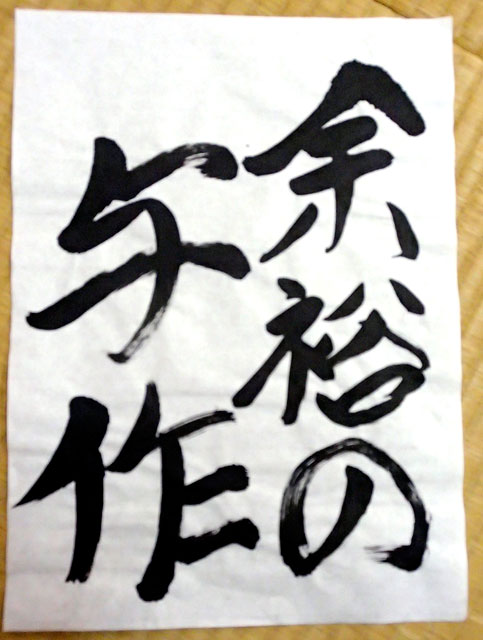 余裕の
与作